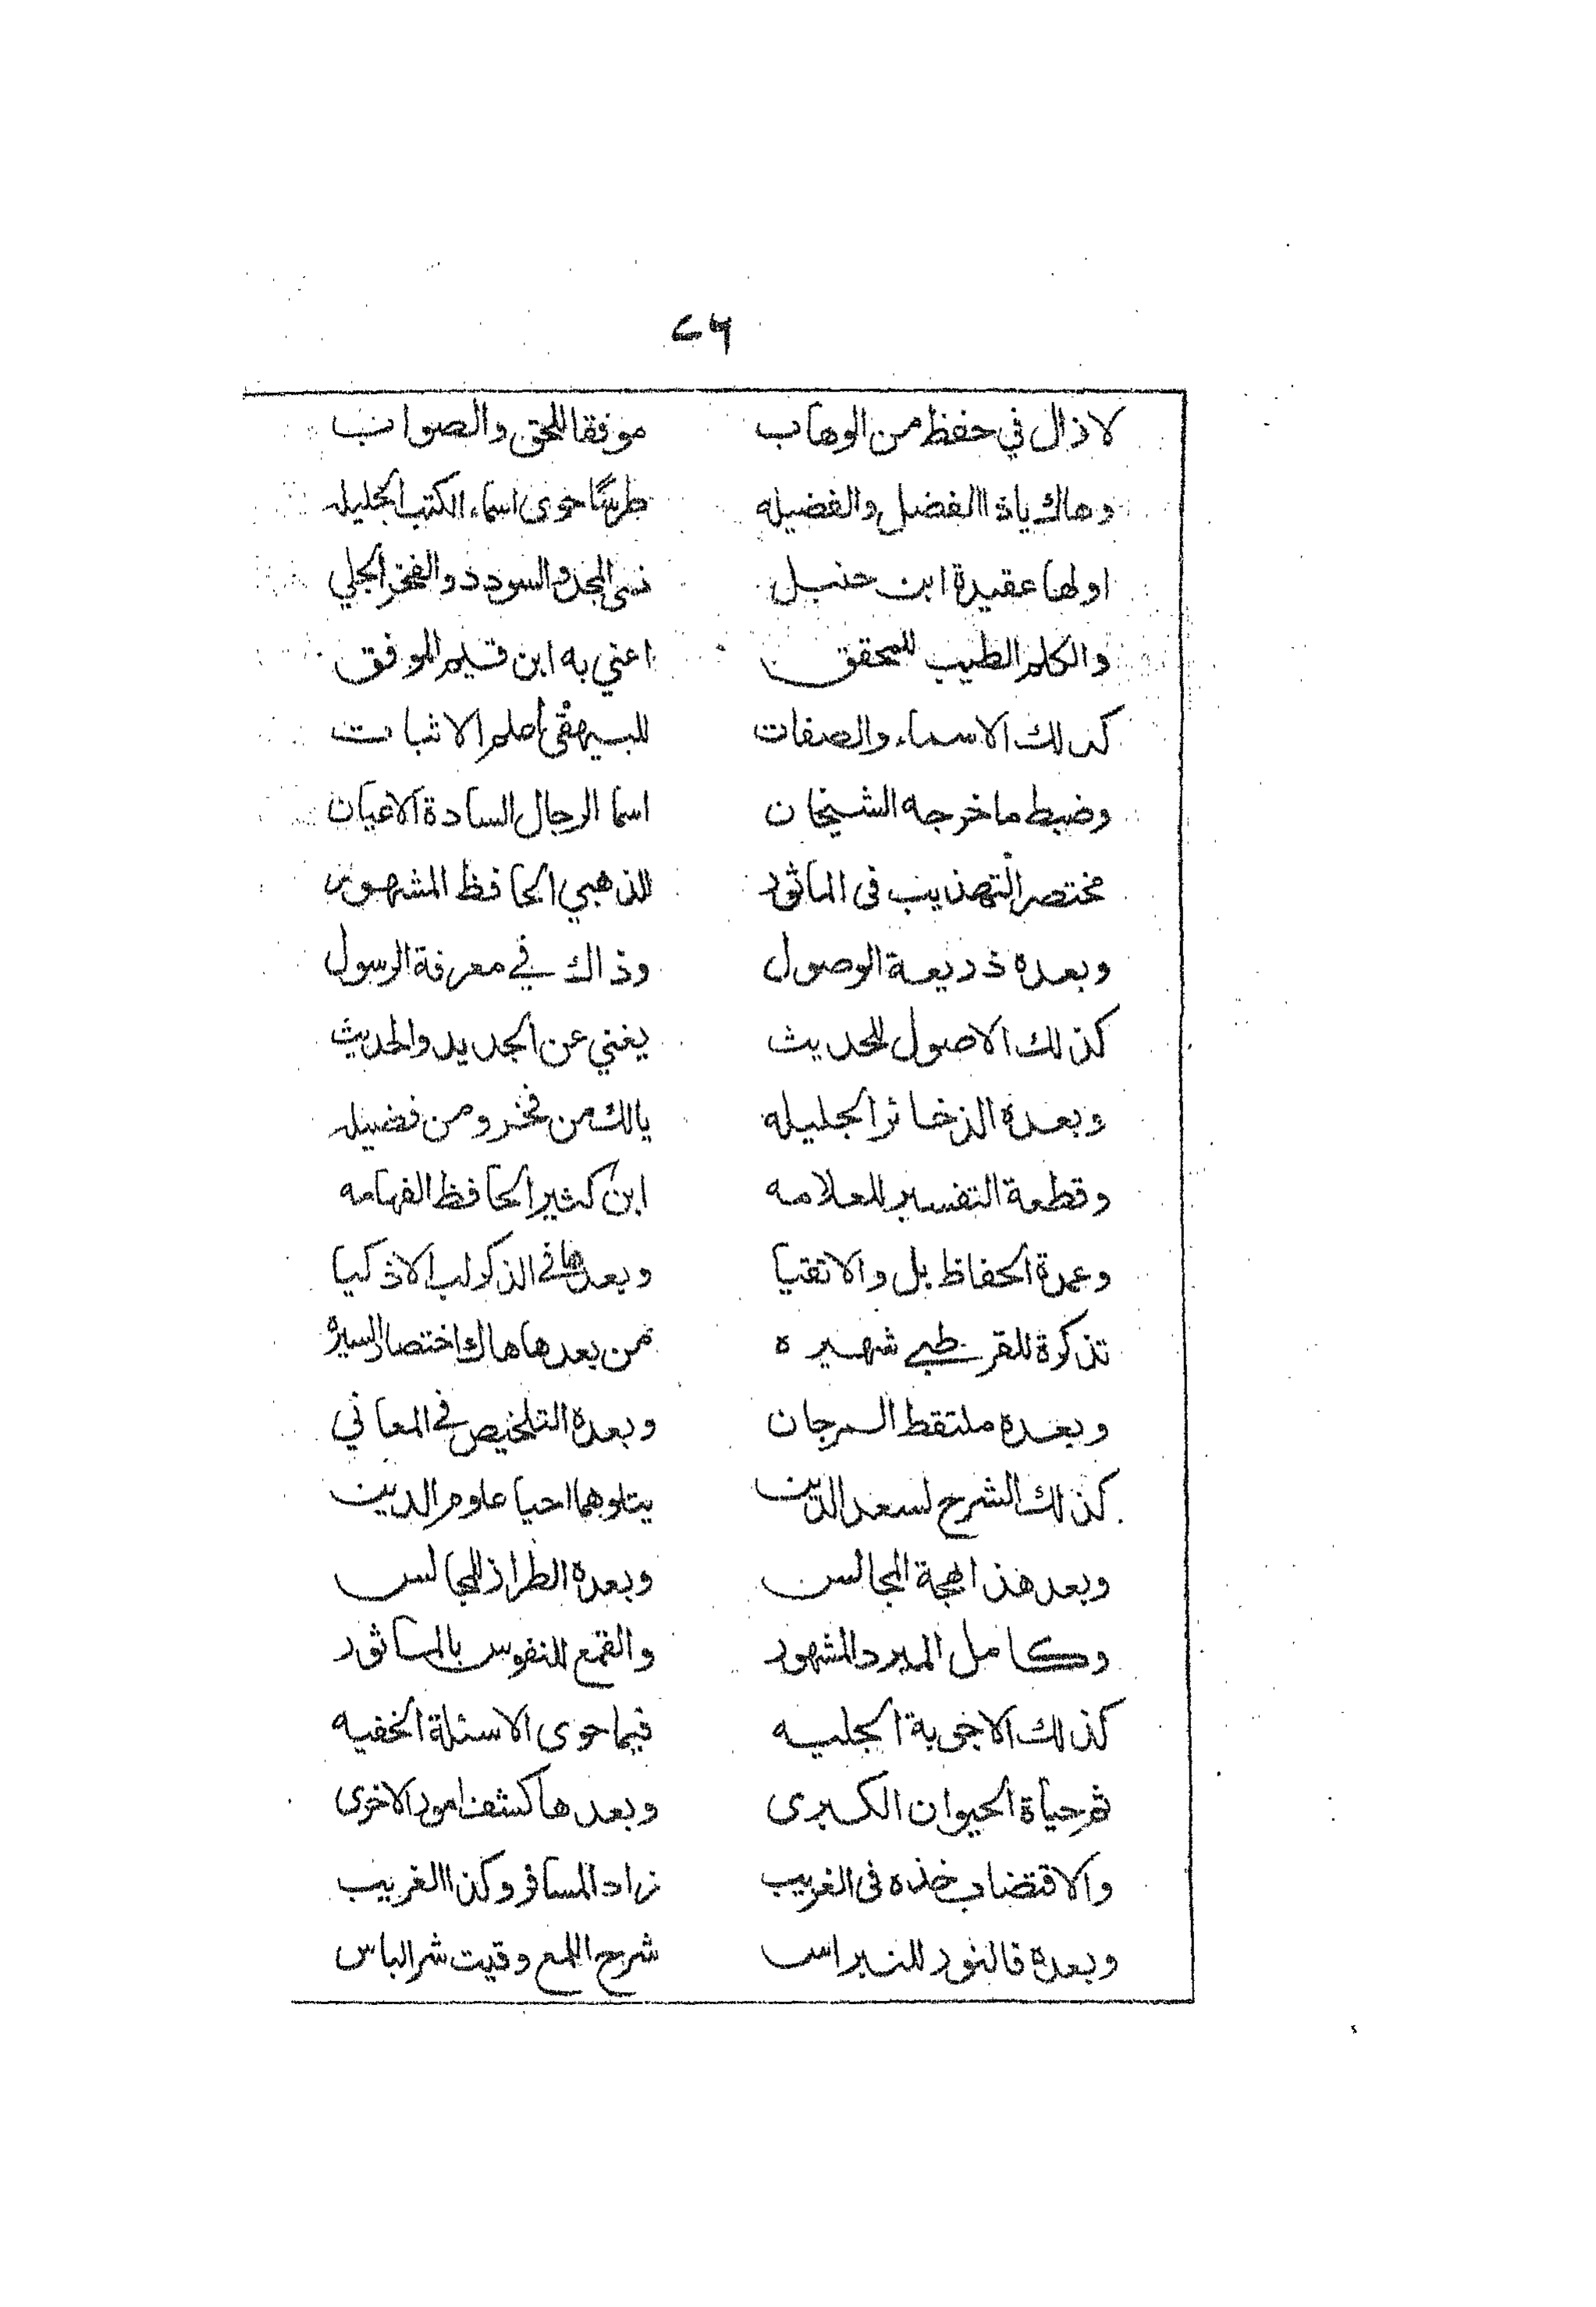 ٢٦
لا زال في حفظ من الوهاب موفقا للحق والصواب
وهاك ياذا الفضل والفضيله طرسًا حوى اسماء الكتب الجليله
اولها عقيدة ابن حنبل ذى المجد والسودد والفخر الجلي
والكلم الطيب للمحقق اعني به ابن قيم الموفق
كذلك الاسماء والصفات للبيهقي الاثبات
وضبط ما خرجه الشيخان اسما الرجال السادة الاعيان
مختصر التهذيب فى الماثور للذهبي الحافظ المشهور
وبعده ذريعة الوصول وذاك في معرفة الرسول
كذلك الاصول للحديث يغني عن الجديد والحديث
وبعده الذخائر الجليله يالك من فخر ومن فضيله
وقطعة التفسير للعلامه ابن كثير الحافظ الفهامه
وعمدة الحفاظ بل والاتقيا وبعدها في الذكر لب الاذكيا
تذكرة للقرطبي شهيره من بعدها هاك اختصار السيره
وبعده ملتقط المرجان وبعده التلخيص في المعاني
كذلك الشرح لسعد الدين يتلوهما احيا علوم الدين
وبعد هذا بهجة المجالس وبعده الطراز للمجالس
وكامل المبرد المشهور والقمع للنفوس بالماثور
كذلك الاجوبة الجليه فيما حوى الاسئلة الخفيه
ثم حياة الحيوان الكبرى وبعدها كشف امور الاخرى
والاقتضاب خذه فى الغريب زاد المسافر وكذا الغريب
وبعده فالنور للنبراس شرح اللمع وقيت شر الباس